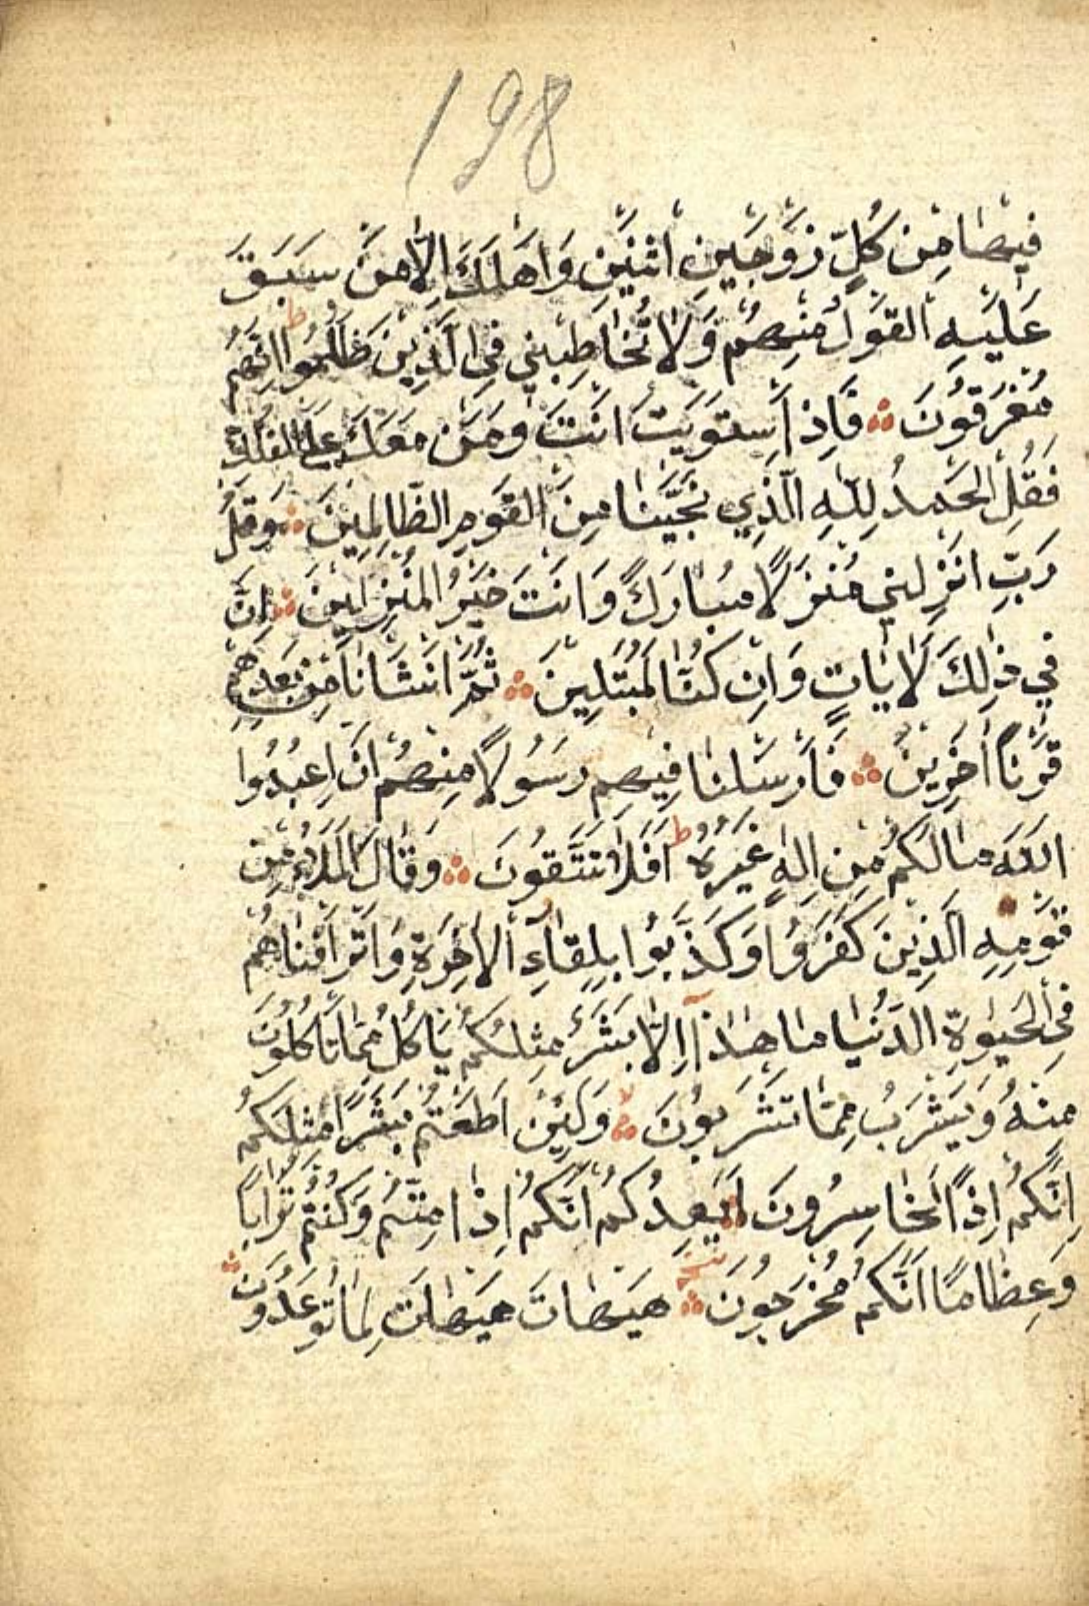 198
فِيهَا مِنْ كُلٍّ زَوْجَيْنِ اثْنَيْنِ وَاَهْلَكَ اِلَّا مَنْ سَبَقَ
عَلَيْهِ الْقَوْلُ مِنْهُمْ وَلَا تُخَاطِبْنِي فِي الَّذِينَ ظَلَمُوا ط اِنَّهُمْ
مُغْرَقُونَ فَاِذَا اسْتَوَيْتَ اَنْتَ وَمَنْ مَعَكَ عَلَى الْفُلْكِ
فَقُلِ الْحَمْدُ لِلّٰهِ الَّذِي نَجَّيٰنَا مِنَ الْقَوْمِ الظَّالِمِينَ وَقُلْ
رَبِّ اَنْزِلْنِي مُنْزَلًا مُبَارَكًا وَاَنْتَ خَيْرُ الْمُنْزِلِينَ اِنَّ
فِي ذٰلِكَ لَاٰيَاتٍ وَاِنْ كُنَّا لَمُبْتَلِينَ ثُمَّ اَنْشَأْنَا مِنْ بَعْدِهِمْ
قَرْنًا اٰخَرِينَ فَاَرْسَلْنَا فِيهِمْ رَسُولًا مِنْهُمْ اَنِ اعْبُدُوا
اللّٰهَ مَا لَكُمْ مِنْ اِلٰهٍ غَيْرُهُ ط اَفَلَا تَتَّقُونَ وَقَالَ الْمَلَاُ مِنْ
قَوْمِهِ الَّذِينَ كَفَرُوا وَكَذَّبُوا بِلِقَاۤءِ الْاٰخِرَةِ وَاَتْرَفْنَاهُمْ
فِي الْحَيٰوةِ الدُّنْيَا مَا هٰذَا اِلَّا بَشَرٌ مِثْلُكُمْ يَاْكُلُ مِمَّا تَاْكُلُونَ
مِنْهُ وَيَشْرَبُ مِمَّا تَشْرَبُونَ وَلَئِنْ اَطَعْتُمْ بَشَرًا مِثْلَكُمْ
اِنَّكُمْ اِذًا لَخَاسِرُونَ اَيَعِدُكُمْ اَنَّكُمْ اِذَا مِتُّمْ وَكُنْتُمْ تُرَابًا
وَعِظَامًا اَنَّكُمْ مُخْرَجُونَ هَيْهَاتَ هَيْهَاتَ لِمَا تُوعَدُونَ